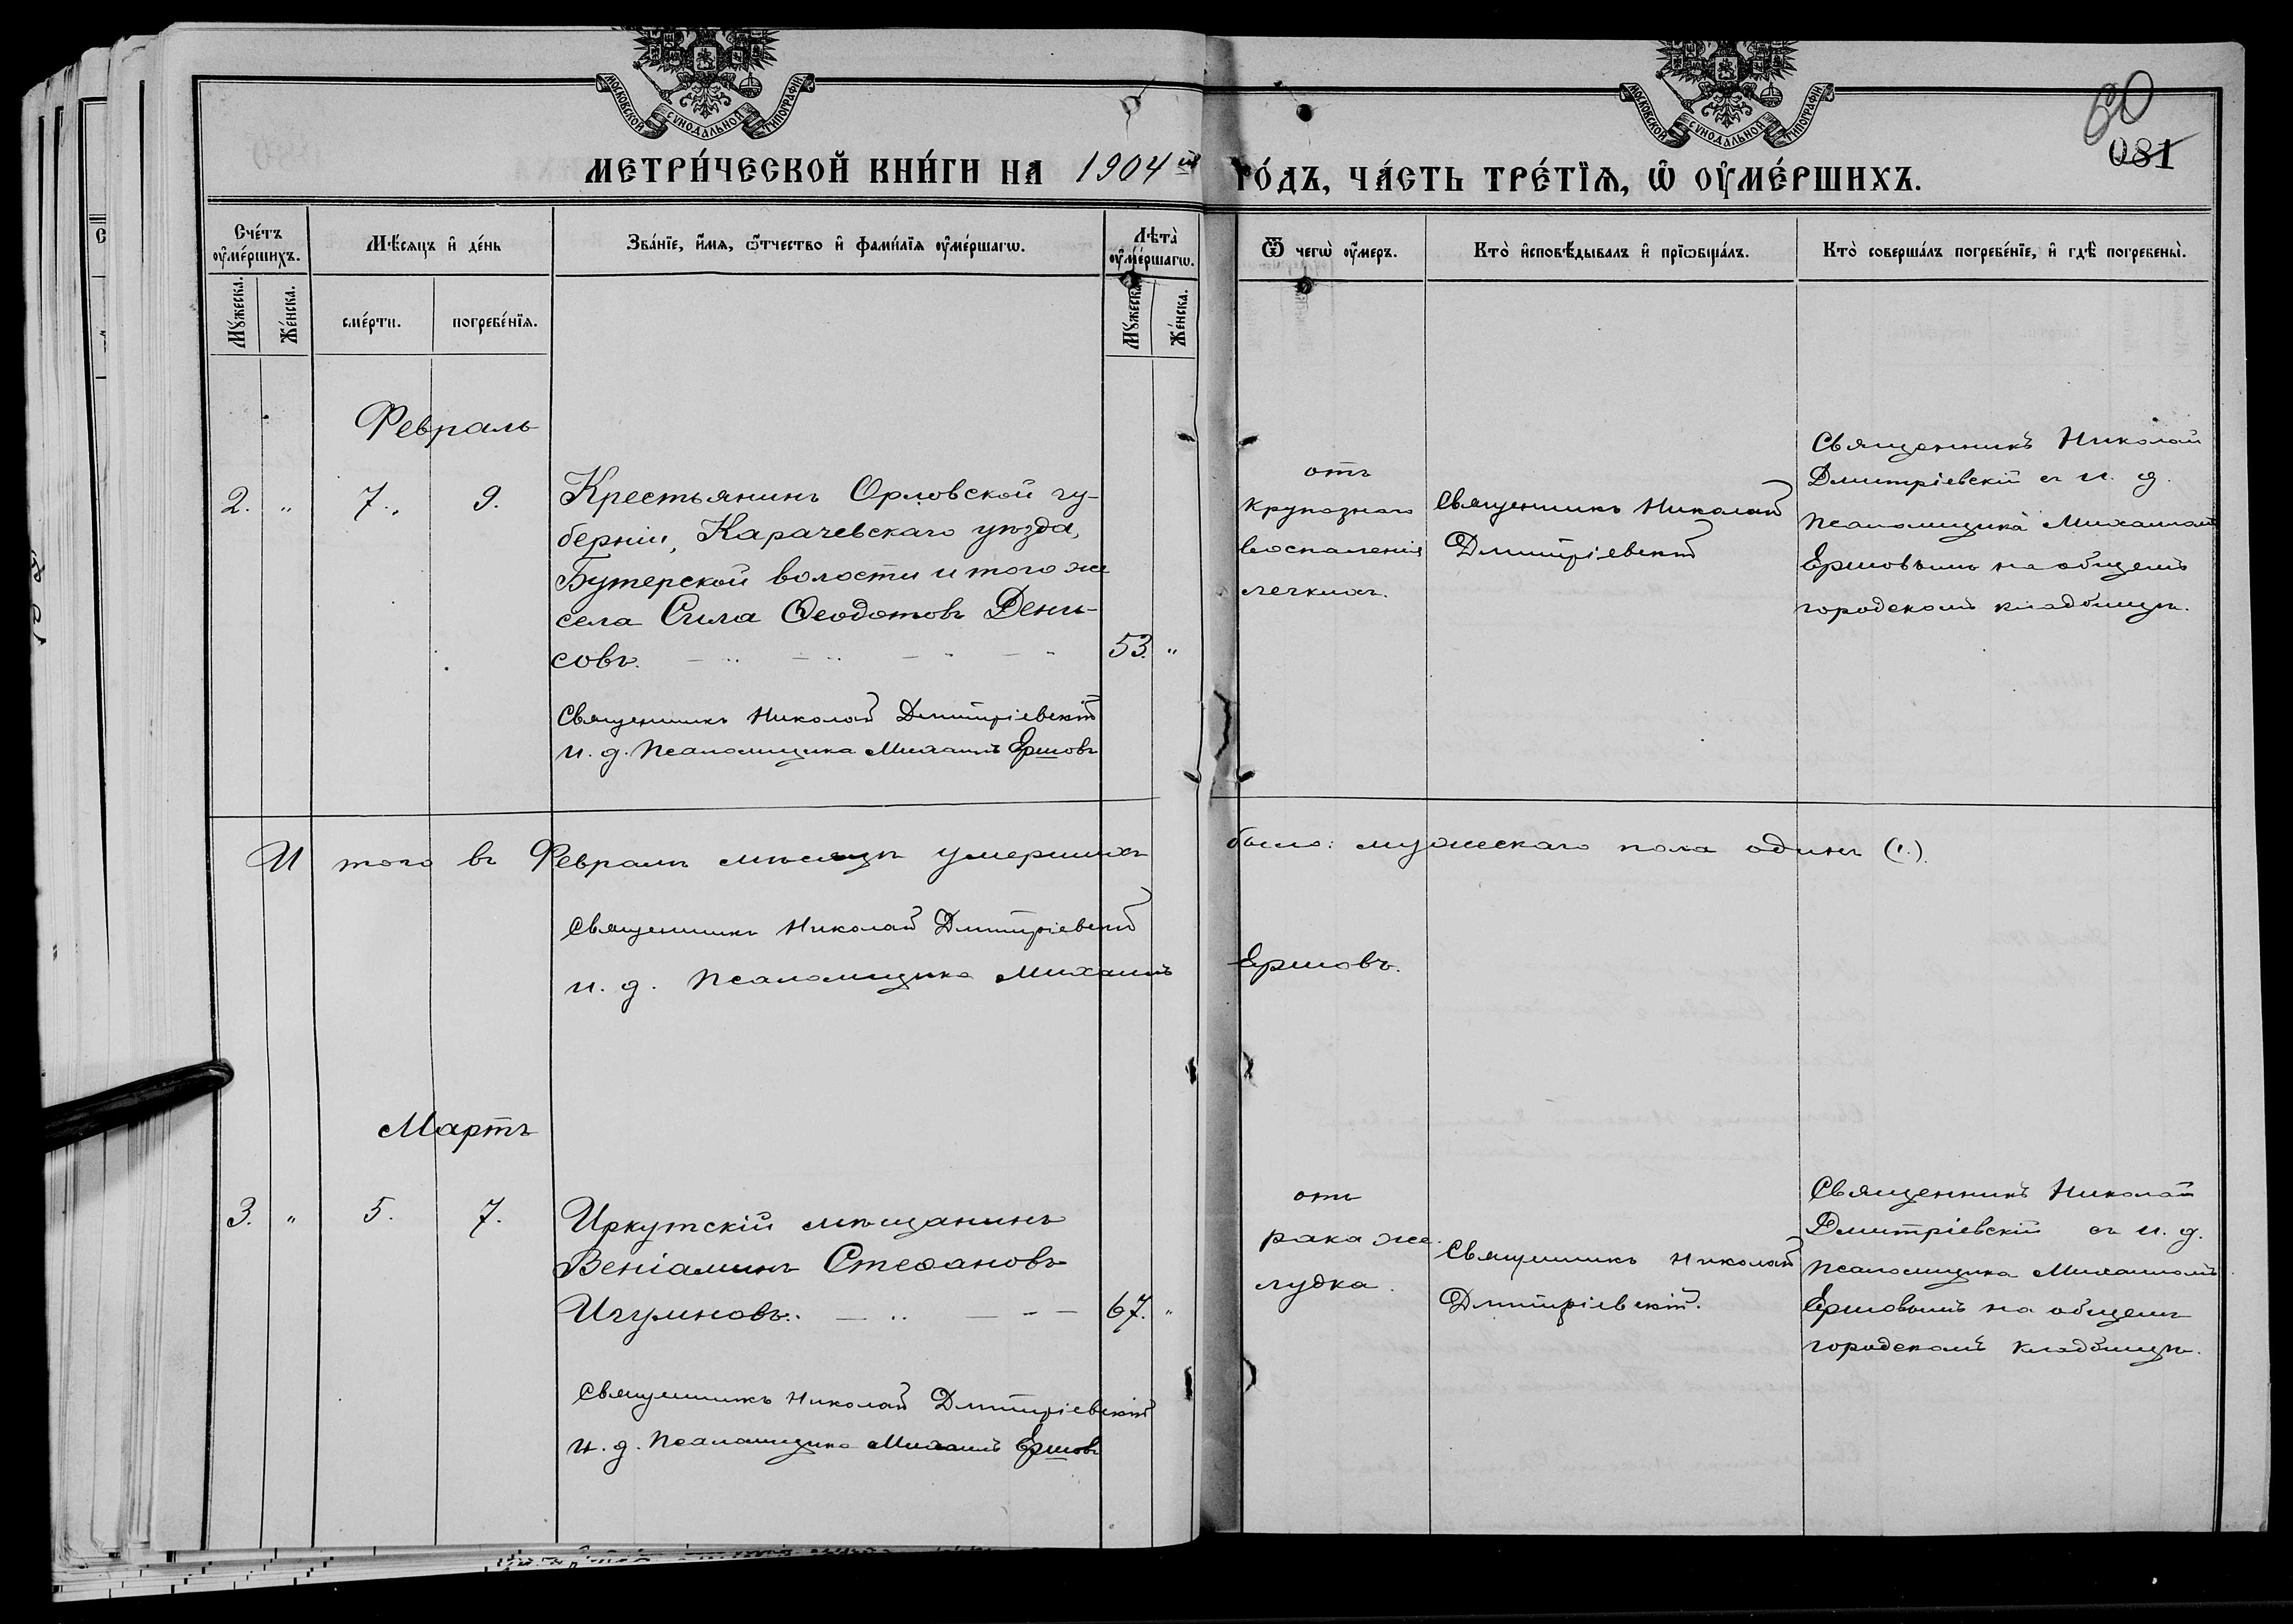 МОСКОВСКОЙ СѴНОДАЛЬНОЙ ТИПОГРАФІИ
МОСКОВСКОЙ СѴНОДАЛЬНОЙ ТИПОГРАФІИ
60
081
МЕТРИ́ЧЕСКОЙ КНИ́ГИ НА 1904й ГО́ДЪ, ЧА́СТЬ ТРЕ́ТЇѦ, Ѡ҆ ОУ҆МЕ́РШИХЪ.
Сче́тъ оу҆ме́ршихъ.
Мꙋ́жеска.
Же́нска.
Мѣ́сяцъ и҆ де́нь
сме́рти.
погребе́нїѧ.
Зва́нїе, и҆́мѧ, ѻ҆́тчество и҆ фами́лїѧ оу҆ме́ршагѡ.
Лѣ́та оу҆ме́ршагѡ.
Мꙋ́жеска.
Же́нска.
Ѿ чегѡ̀ оу҆́меръ.
Кто̀ и҆сповѣ́дывалъ и҆ прїѡбща́лъ.
Кто̀ соверша́лъ погребе́нїе, и҆ гдѣ̀ погребены̀.
Февраль
2. „ 7. 9.
Крестьянинъ Орловской гу-
берніи, Карачевскаго уѣзда,
Бутерской волости и того же
села Сила Ѳеодотовъ Дени-
совъ. 53. „
Священникъ Николай Дмитріевскій
и. д. Псаломщика Михаилъ Ершовъ
отъ
крупознаго
воспаленія
легкихъ.
Священникъ Николай
Дмитріевскій
Священникъ Николай
Дмитріевскій съ и. д.
псаломщика Михаиломъ
Ершовымъ на общемъ
городскомъ кладбищѣ.
И того въ Февралѣ мѣсяцѣ умершихъ было: мужескаго пола одинъ (1.).
Священникъ Николай Дмитріевскій
и. д. Псаломщика Михаилъ Ершовъ.
Мартъ
3. „ 5. 7.
Иркутскій мѣщанинъ
Веніаминъ Стефановъ
Игумновъ. 67. „
Священникъ Николай Дмитріевскій
и. д. Псаломщика Михаилъ Ершовъ
отъ
рака же-
лудка.
Священникъ Николай
Дмитріевскій.
Священникъ Николай
Дмитріевскій съ и. д.
псаломщика Михаиломъ
Ершовымъ на общемъ
городскомъ кладбищѣ.